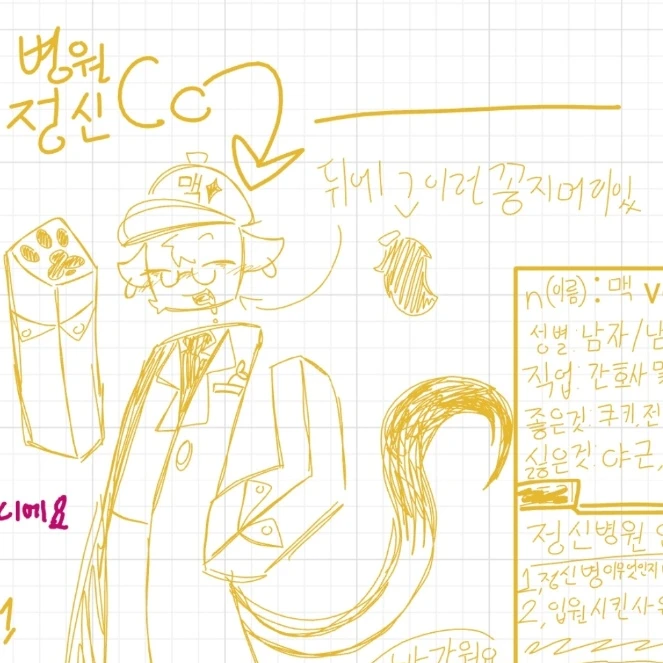 병원
정신 Co
뒤에 이런 꽁지머리있
맥
n(이름): 맥 v
성별: 남자/남
직업: 간호사 및
좋은것: 쿠키, 전
싫은것: 야근,
디에요
정신병원
1, 정신병이무엇인지
2, 입원시킨사
반가워요